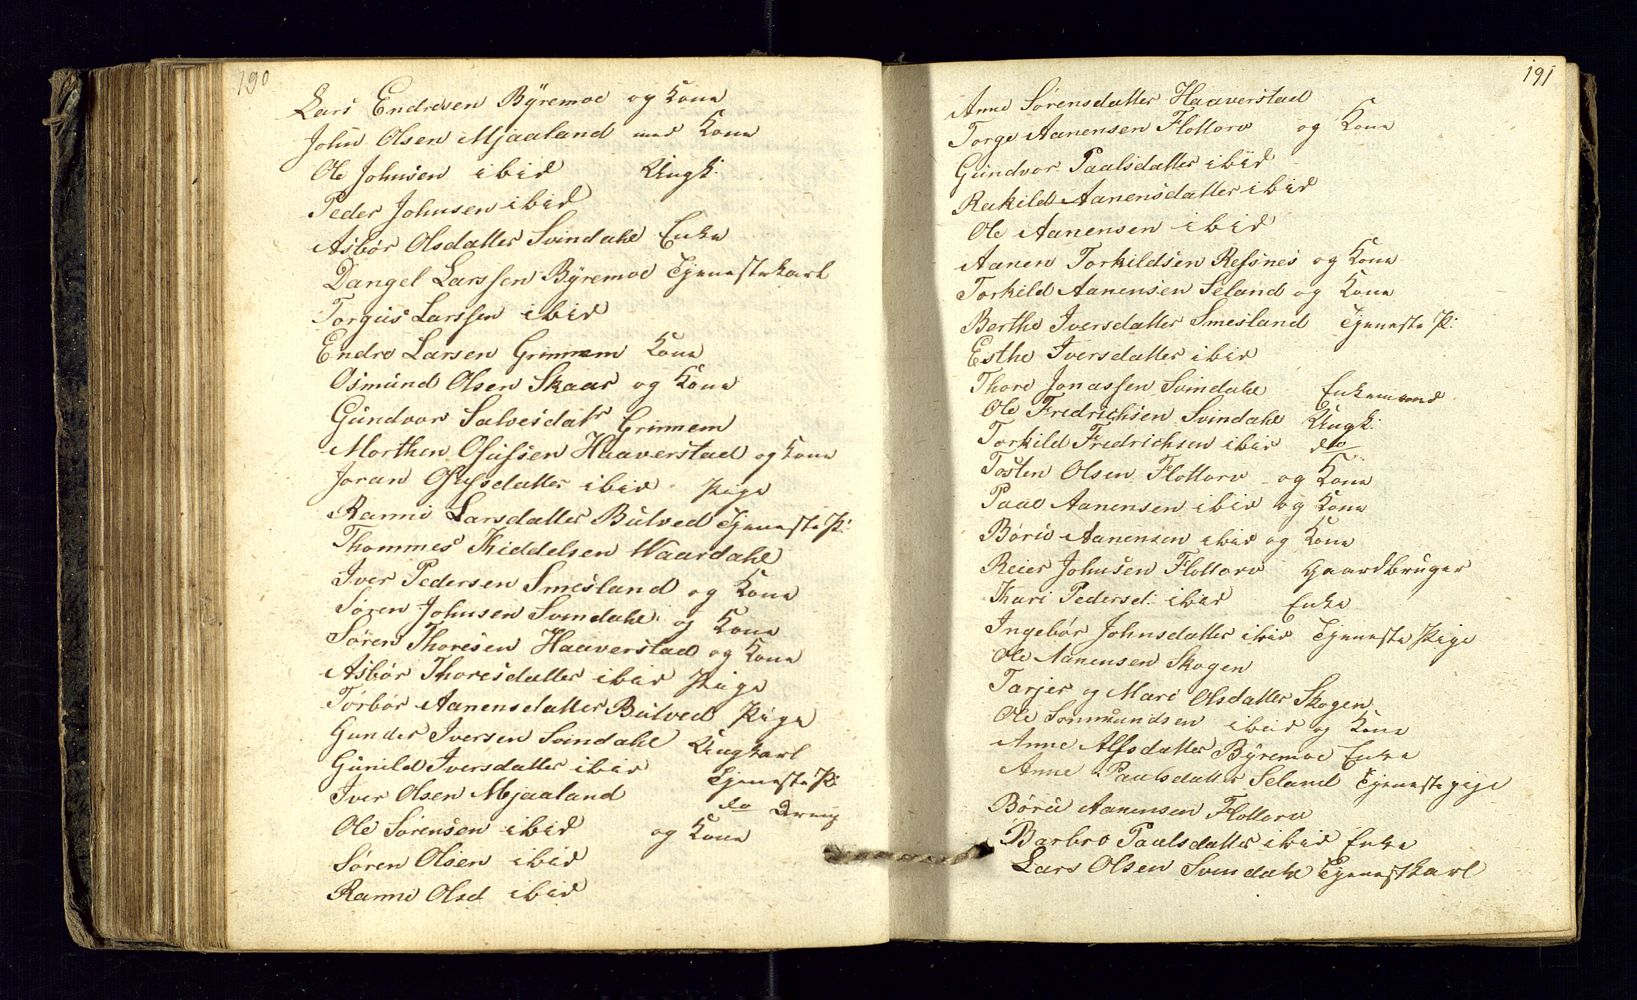 190
Lars Endresen Byremoe og Kone
John Olsen Mjaaland med Kone
Ole Johnsen ibid Ungk:
Peder Johnsen ibid
Asbør Olsdatter Svindahl Enke
Dangel Larssen Byremoe Tjenestekarl
Torgus Larssen ibid
Endre Larsen Grinnem Kone
Osmund Olsen Skaar og Kone
Gundvor Salvesdatr Grinnem
Morthen Ofussen Haaverstad og Kone
Joran Ofusdatter ibid Pige
Ranni Larsdatter Bulved Tjeneste P:
Thommes Kiddelsen Waardahl
Iver Pedersen Smesland og Kone
Søren Johnsen Svindahl og Kone
Søren Thoresen Haaverstad og Kone
Asbør Thoresdatter ibid Pige
Torbør Aanensdatter Bulved Pige
Gunder Iversen Svindahl Ungkarl
Gunild Iversdatter ibid Tjeneste P:
Iver Olsen Mjaaland do Dreng
Ole Sørensen ibid og Kone
Søren Olsen ibid
Ranni Olsd ibid
191
Anne Sørensdatter Haaverstad
Torge Aanensen Flottorv og Kone
Gundvor Paalsdatter ibid
Rakild Aanensdatter ibid
Ole Aanensen ibid
Aanen Torkildsen Refsnes og Kone
Torkild Aanensen Seland og Kone
Berthe Iversdatter Smesland Tjeneste P:
Esthe Iversdatter ibid
Thore Jonassen Svindahl Enkemand
Ole Fredrichsen Svindahl Ungk:
Torkild Fredrichsen ibid do
Tosten Olsen Flottorv og Kone
Paal Aanensen ibid og Kone
Børu Aanensen ibid og Kone
Reier Johnsen Flottorv Gaardbruger
Kari Pedersd: ibid Enke
Ingebør Johnsdatter ibid Tjeneste Pige
Ole Aanensen Skogen
Tarjer og Mari Olsdatter Skogen
Ole Sommundsen ibid og Kone
Anne Alfsdatter Byremoe Enke
Anne Paalsdatter Seland Tjenestepige
Børu Aanensen Flottorv
Barbro Paalsdatter ibid Enke
Lars Olsen Svindahl Tjenestkarl